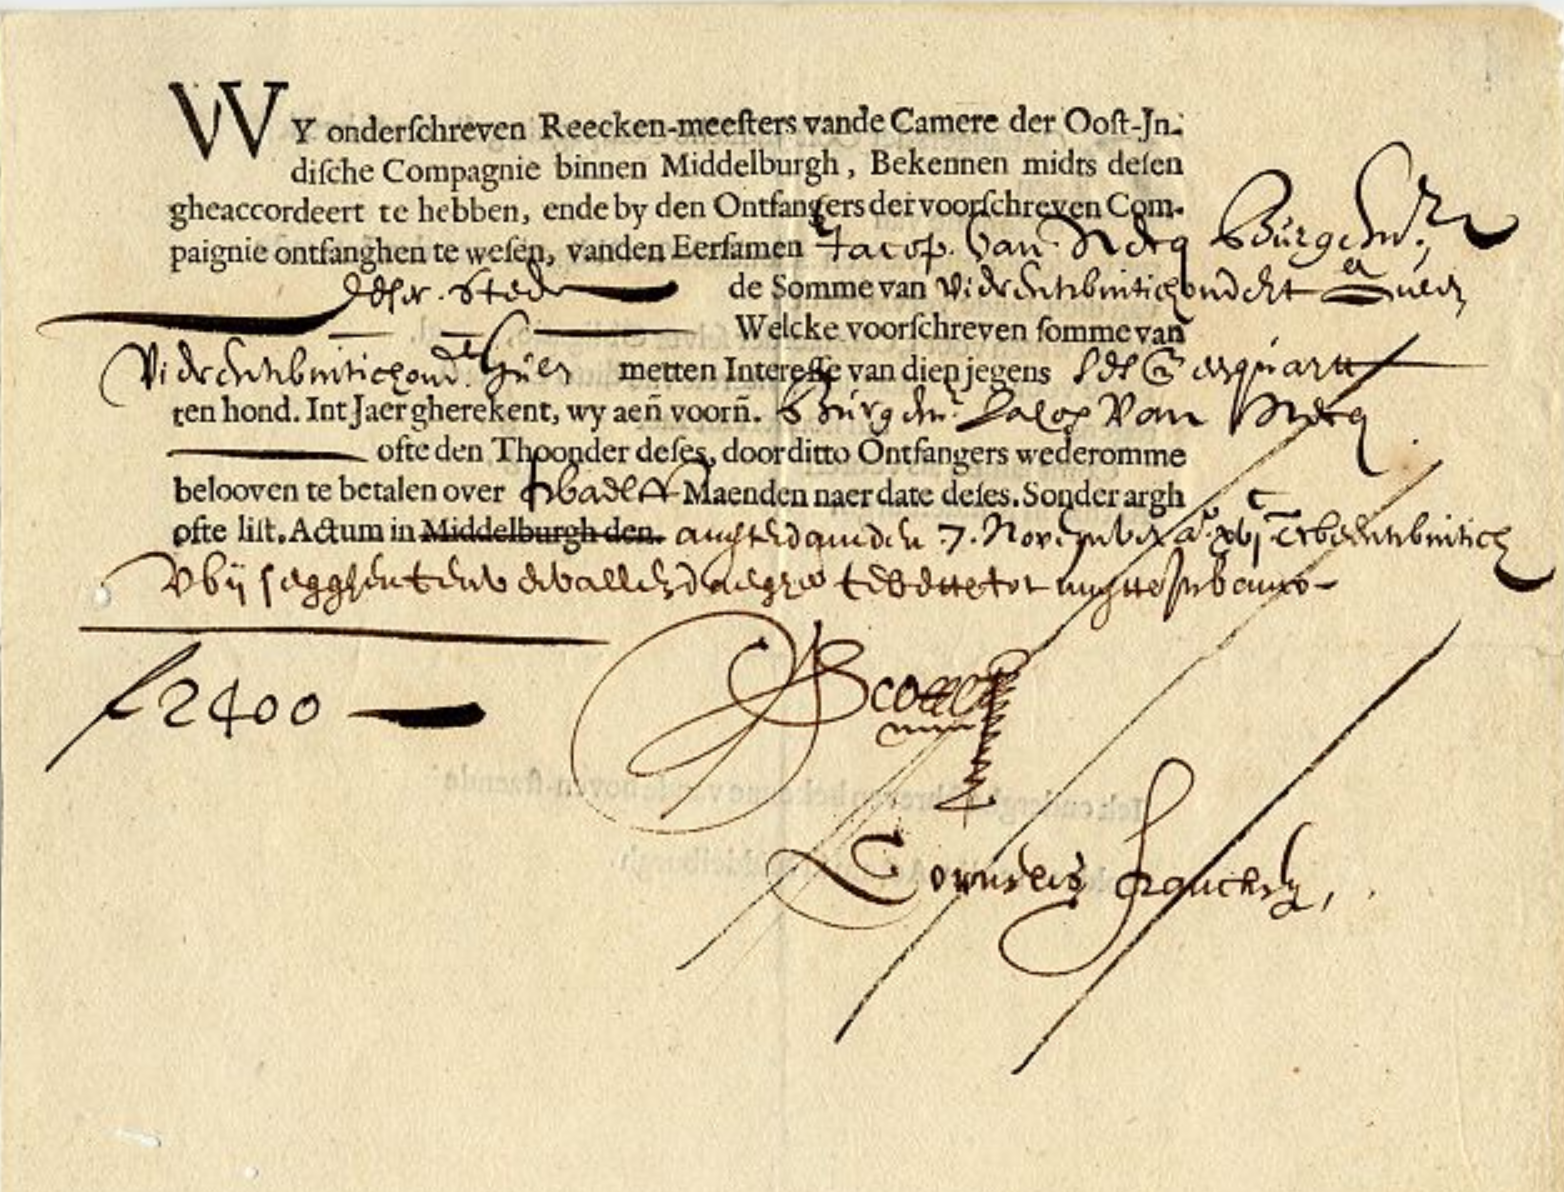 WY onderſchreven Reecken-meeſters vande Camere der Ooſt-Jn-
diſche Compagnie binnen Middelburgh, Bekennen midts deſen
gheaccordeert te hebben, ende by den Ontfangers der voorſchreven Com-
paignie ontfanghen te weſen, vanden Eerſamen Jacop van Neeq Burgem.r
deser stede de Somme van vierentwintichondert guld
Welcke voorſchreven ſomme van
vierentwintichond. guld metten Intereſſe van dien jegens
ten hond. Int Jaer gherekent, wy aen̄ voorn̄. Burgem.r Jacop van Neeq
ofte den Thoonder deſes, door ditto Ontfangers wederomme
belooven te betalen over twaelff Maenden naer date deſes. Sonder argh
ofte liſt. Actum in Middelburgh den. amsterdam den 7. November
f 2400
Cornelis